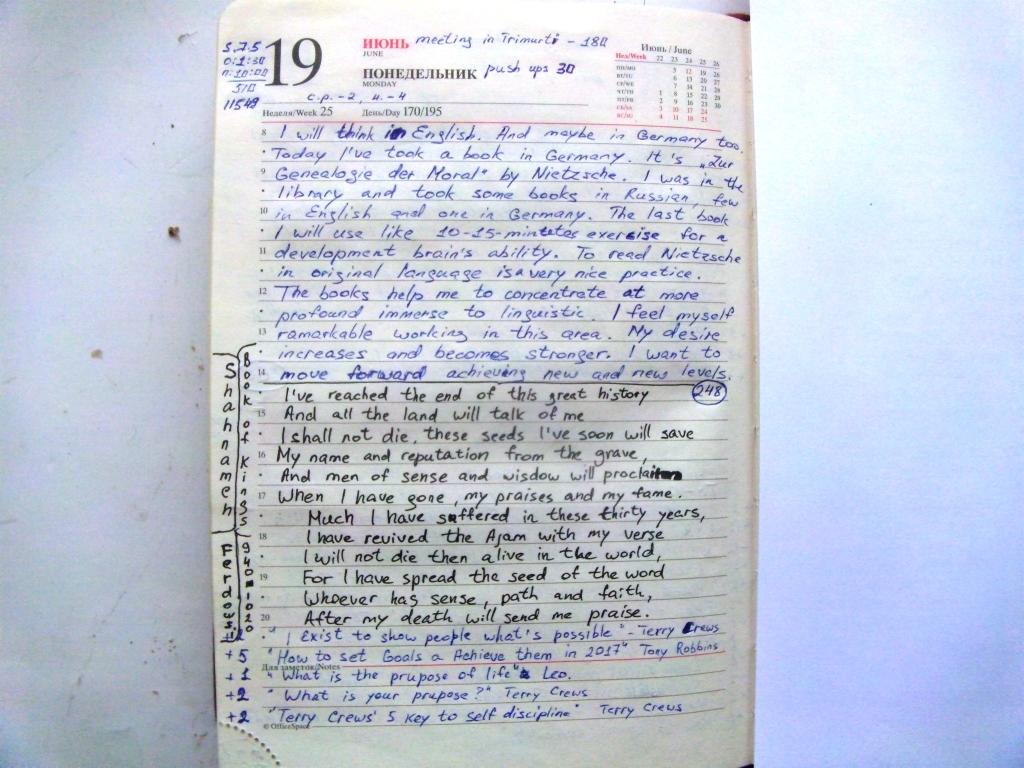 S.7.5
0:1:30
n:10:00
5/0
11549
19
ИЮНЬ
JUNE
meeting in Trimurti - 180
ПОНЕДЕЛЬНИК
MONDAY
push ups 30
c.p. -2, u. -4
Неделя/Week 25 День/Day 170/195
Июнь / June
Нед/Week 22 23 24 25 26
ПН/MO 5 12 19 26
ВТ/TU 6 13 20 27
СР/WE 7 14 21 28
ЧТ/TH 1 8 15 22 29
ПТ/FR 2 9 16 23 30
СБ/SA 3 10 17 24
ВС/SU 4 11 18 25
8 I will think in English. And maybe in Germany too.
Today I've took a book in Germany. It's „Zur
9 Genealogie der Moral" by Nietzsche. I was in the
library and took some books in Russian, few
10 in English and one in Germany. The last book
I will use like 10-15-mintetes exercise for a
11 development brain's ability. To read Nietzsche
in original language is a very nice practice.
12 The books help me to concentrate at more
profound immerse to linguistic. I feel myself
13 ramarkable working in this area. My desire
increases and becomes stronger. I want to
14 move forward achieving new and new levels.
I've reached the end of this great history 248
15 And all the land will talk of me
I shall not die, these seeds I've soon will save
16 My name and reputation from the grave,
And men of sense and wisdow will proclaim
17 When I have gone, my praises and my fame.
Much I have suffered in these thirty years,
18 I have revived the Ajam with my verse
I will not die then alive in the world,
19 For I have spread the seed of the word
Whoever has sense, path and faith,
20 After my death will send me praise.
Shahnameh
Book of Kings
Ferdowsi
940-1020
+2 "I Exist to show people what's possible" - Terry Crews
+5 "How to set Goals a Achieve them in 2017" Tony Robbins
Для заметок/Notes
+1 "What is the prupose of life" Leo.
+2 "What is your prupose?" Terry Crews
+2 "Terry Crews' 5 key to self discipline" Terry Crews
© OfficeSpace